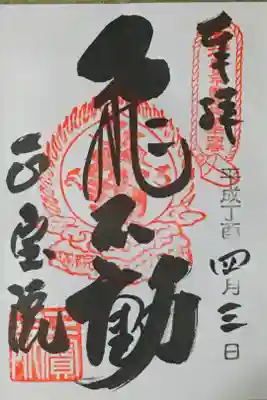 奉拝
平成丁酉
四月三日
飛不動
正宝院